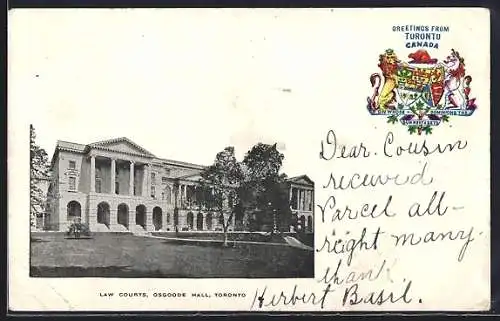 GREETINGS FROM
TORONTO
CANADA
Dear Cousin
received
Parcel all-
right many.
thank
Herbert Basil.
LAW COURTS, OSGOODE HALL, TORONTO